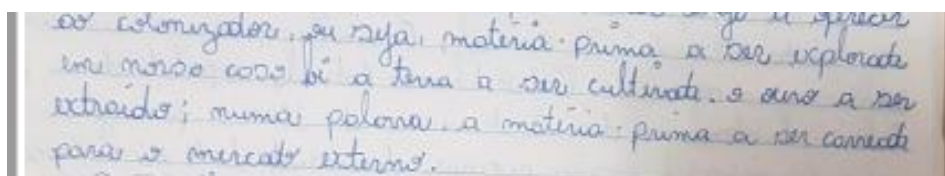 a oferecer
ao colonizador, ou seja, matéria-prima a ser explorada
em nosso caso foi a terra a ser cultivada, o ouro a ser
extraído; numa palavra, a matéria-prima a ser carreada
para o mercado externo.